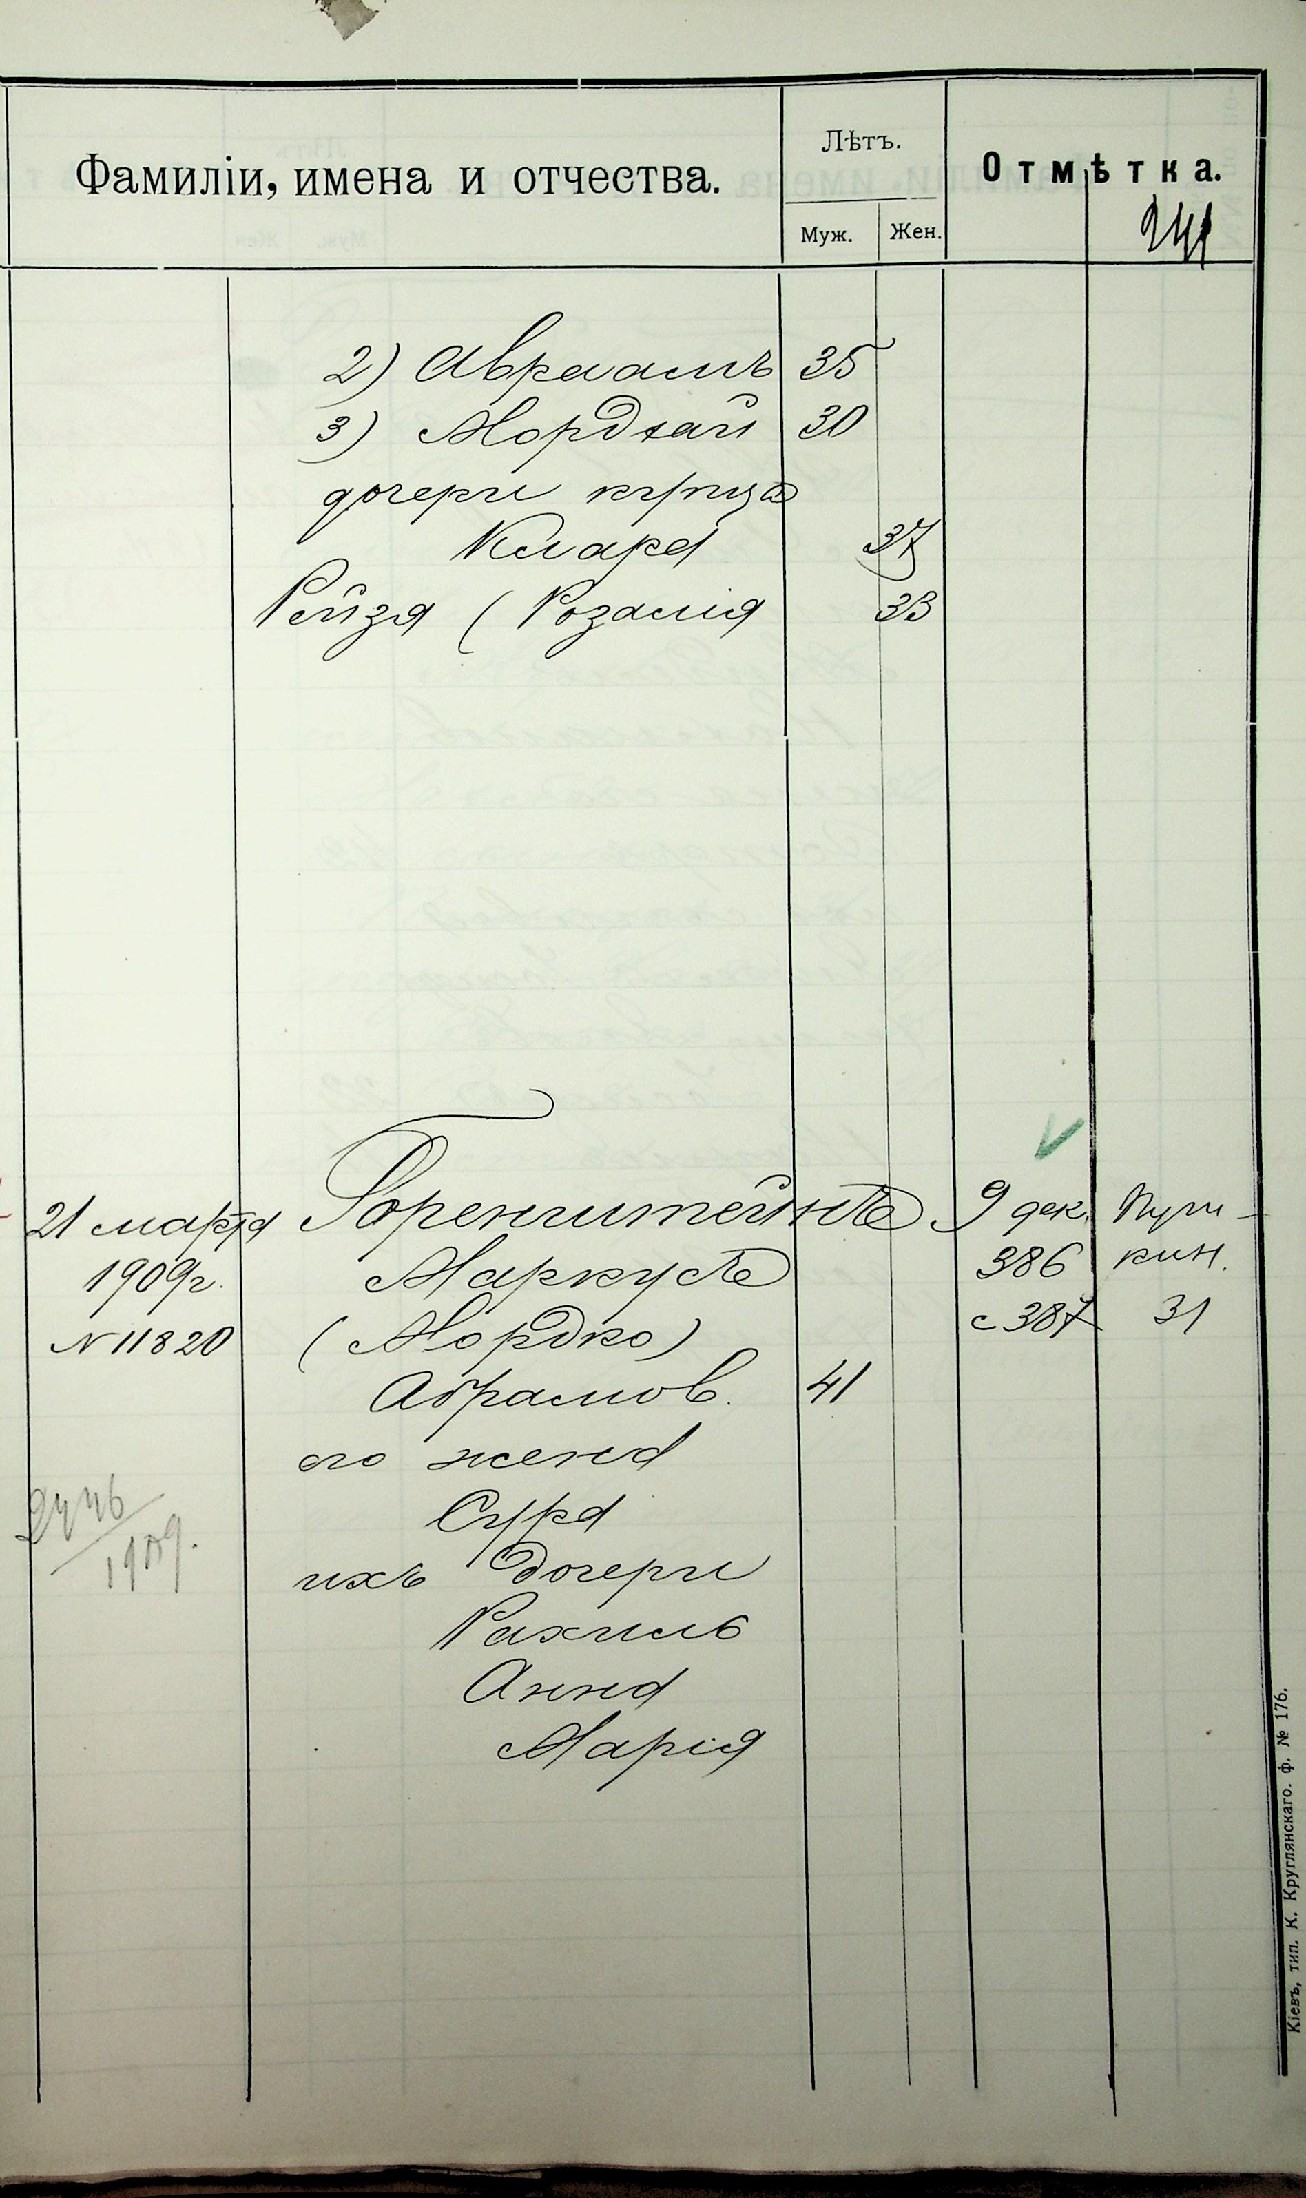 Фамиліи, имена и отчества.
Лѣтъ.
Муж. Жен.
Отмѣтка.
241
2) Авраамъ 35
3) Мордхай 30
дочери купца
Клара 37
Рейза (Розалія 33
21 марта Горенштейнъ 9 дек. Пуш-
1909г. Маркусъ 386 кин.
N 11820 (Мордко) с 387 31
Абрамов. 41
его жена
Сура
2446
1909.
ихъ дочери
Рахиль
Анна
Марія
Кіевъ, тип. К. Круглянскаго. ф. № 176.